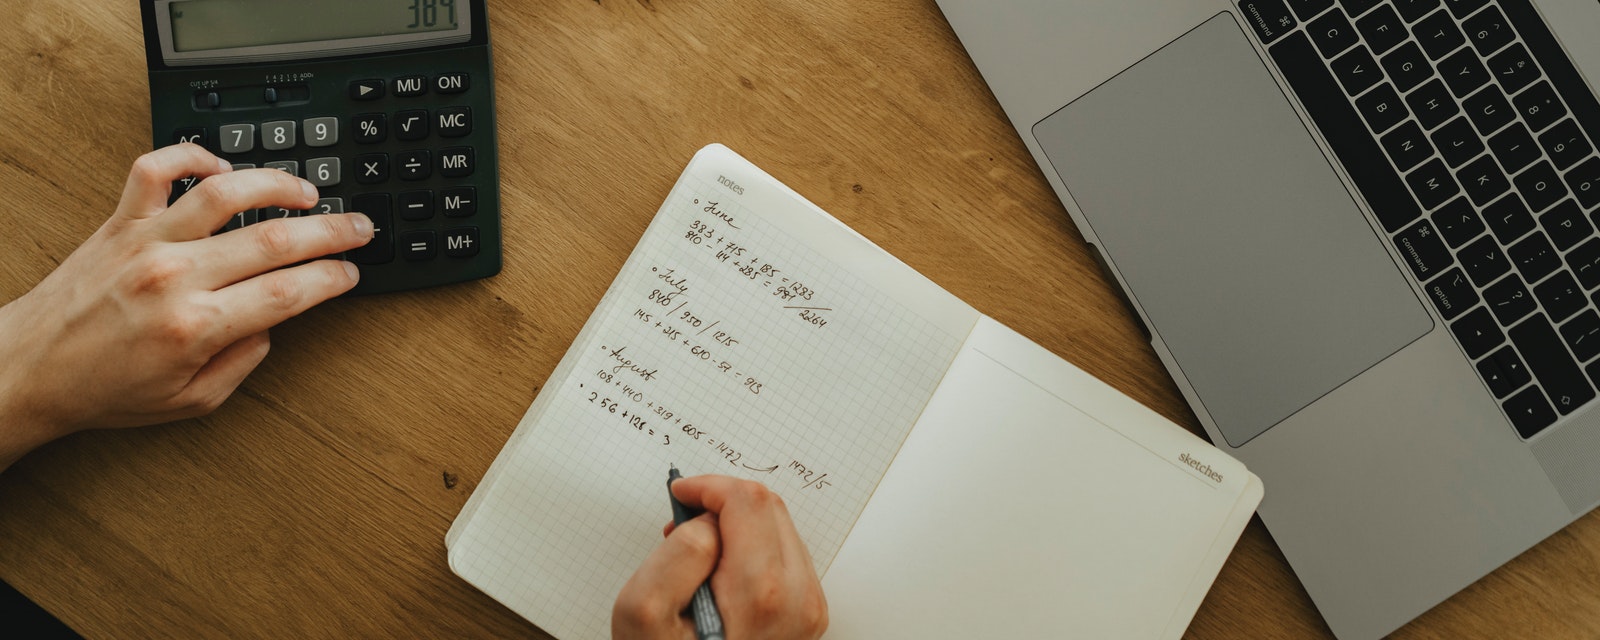 389.
CUT UP 5/4
4 2 1 0 ADD2
MU ON
7 8 9 % √ MC
6 × ÷ MR
1 2 3 − M−
+ = M+
notes
June
383 + 715 + 185 = 1283
810 - 114 + 285 = 981
2264
July
840 / 950 / 1215
145 + 215 + 610 - 57 = 913
August
108 + 440 + 319 + 605 = 1472
1472/5
256 + 128 = 3
sketches
command
C F T 6
V G Y 7
B H U 8
N J I 9
M K O
L P
command
option